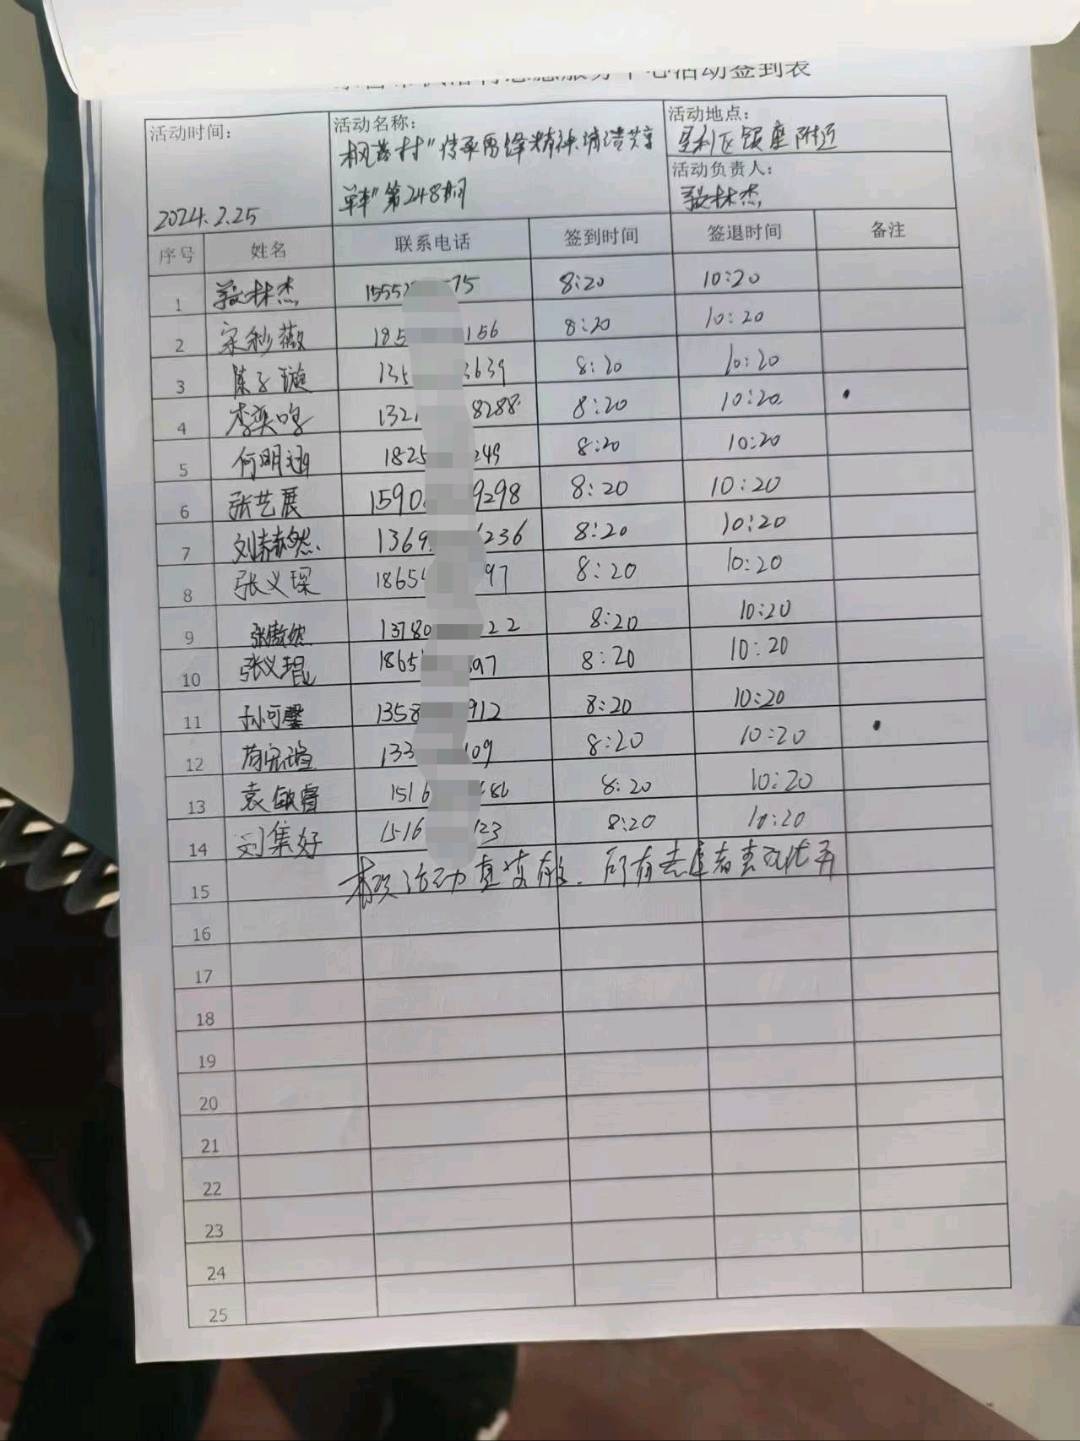 服务中心活动签到表
活动时间： 活动名称： 活动地点：
枫落村"传承雷锋精神.清洁共享 垦利区银座附近
单车"第248期 活动负责人：
2024.2.25 林杰
序号 姓名 联系电话 签到时间 签退时间 备注
1 林杰 1555 75 8:20 10:20
2 宋秒薇 185 156 8:20 10:20
3 陈子璇 135 3639 8:20 10:20
4 李奕鸣 132 8288 8:20 10:20
5 何明 1825 249 8:20 10:20
6 张艺展 1590 9298 8:20 10:20
7 刘 然 1369 6236 8:20 10:20
8 张义琛 1865 97 8:20 10:20
9 张傲然 13780 22 8:20 10:20
10 张义琨 1865 97 8:20 10:20
11 孙可馨 1358 912 8:20 10:20
12 133 109 8:20 10:20
13 袁 睿 1516 8:20 10:20
14 刘集好 1516 123 8:20 10:20
15 本次活动真实有效.所有志愿者表现优秀
16
17
18
19
20
21
22
23
24
25